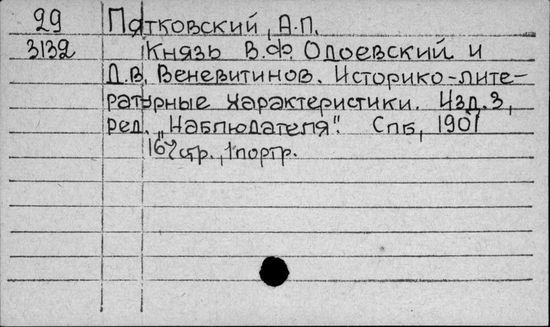 29 Пятковский, А.П.
3132 Князь В.Ф. Одоевский и
Д.В. Веневитинов. Историко-лите-
ратурные характеристики. Изд. 3,
ред. „Наблюдателя". Спб, 1901
167 стр., 1 портр.